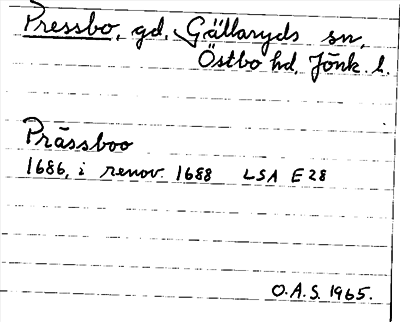 Pressbo, gd, Gällaryds sn,
Östbo hd, Jönk. l.
Prässboo
1686, i renov. 1688 LSA E 28
O.A.S. 1965.